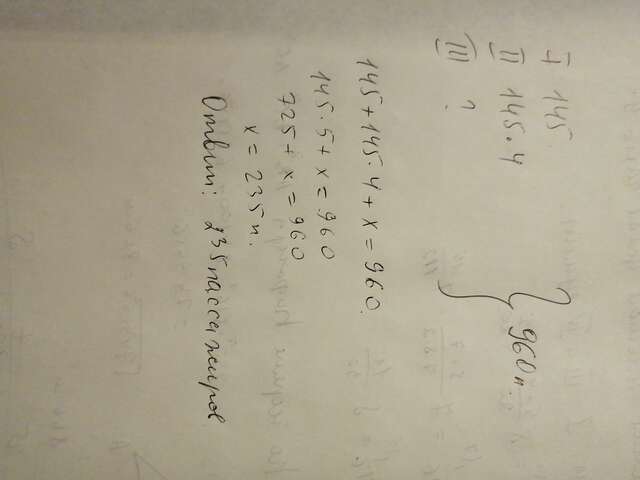 I 145.
II 145·4
III ?
} 960 п.
145 + 145·4 + x = 960.
145·5 + x = 960
725 + x = 960
x = 235 п.
Ответ: 235 пассажиров